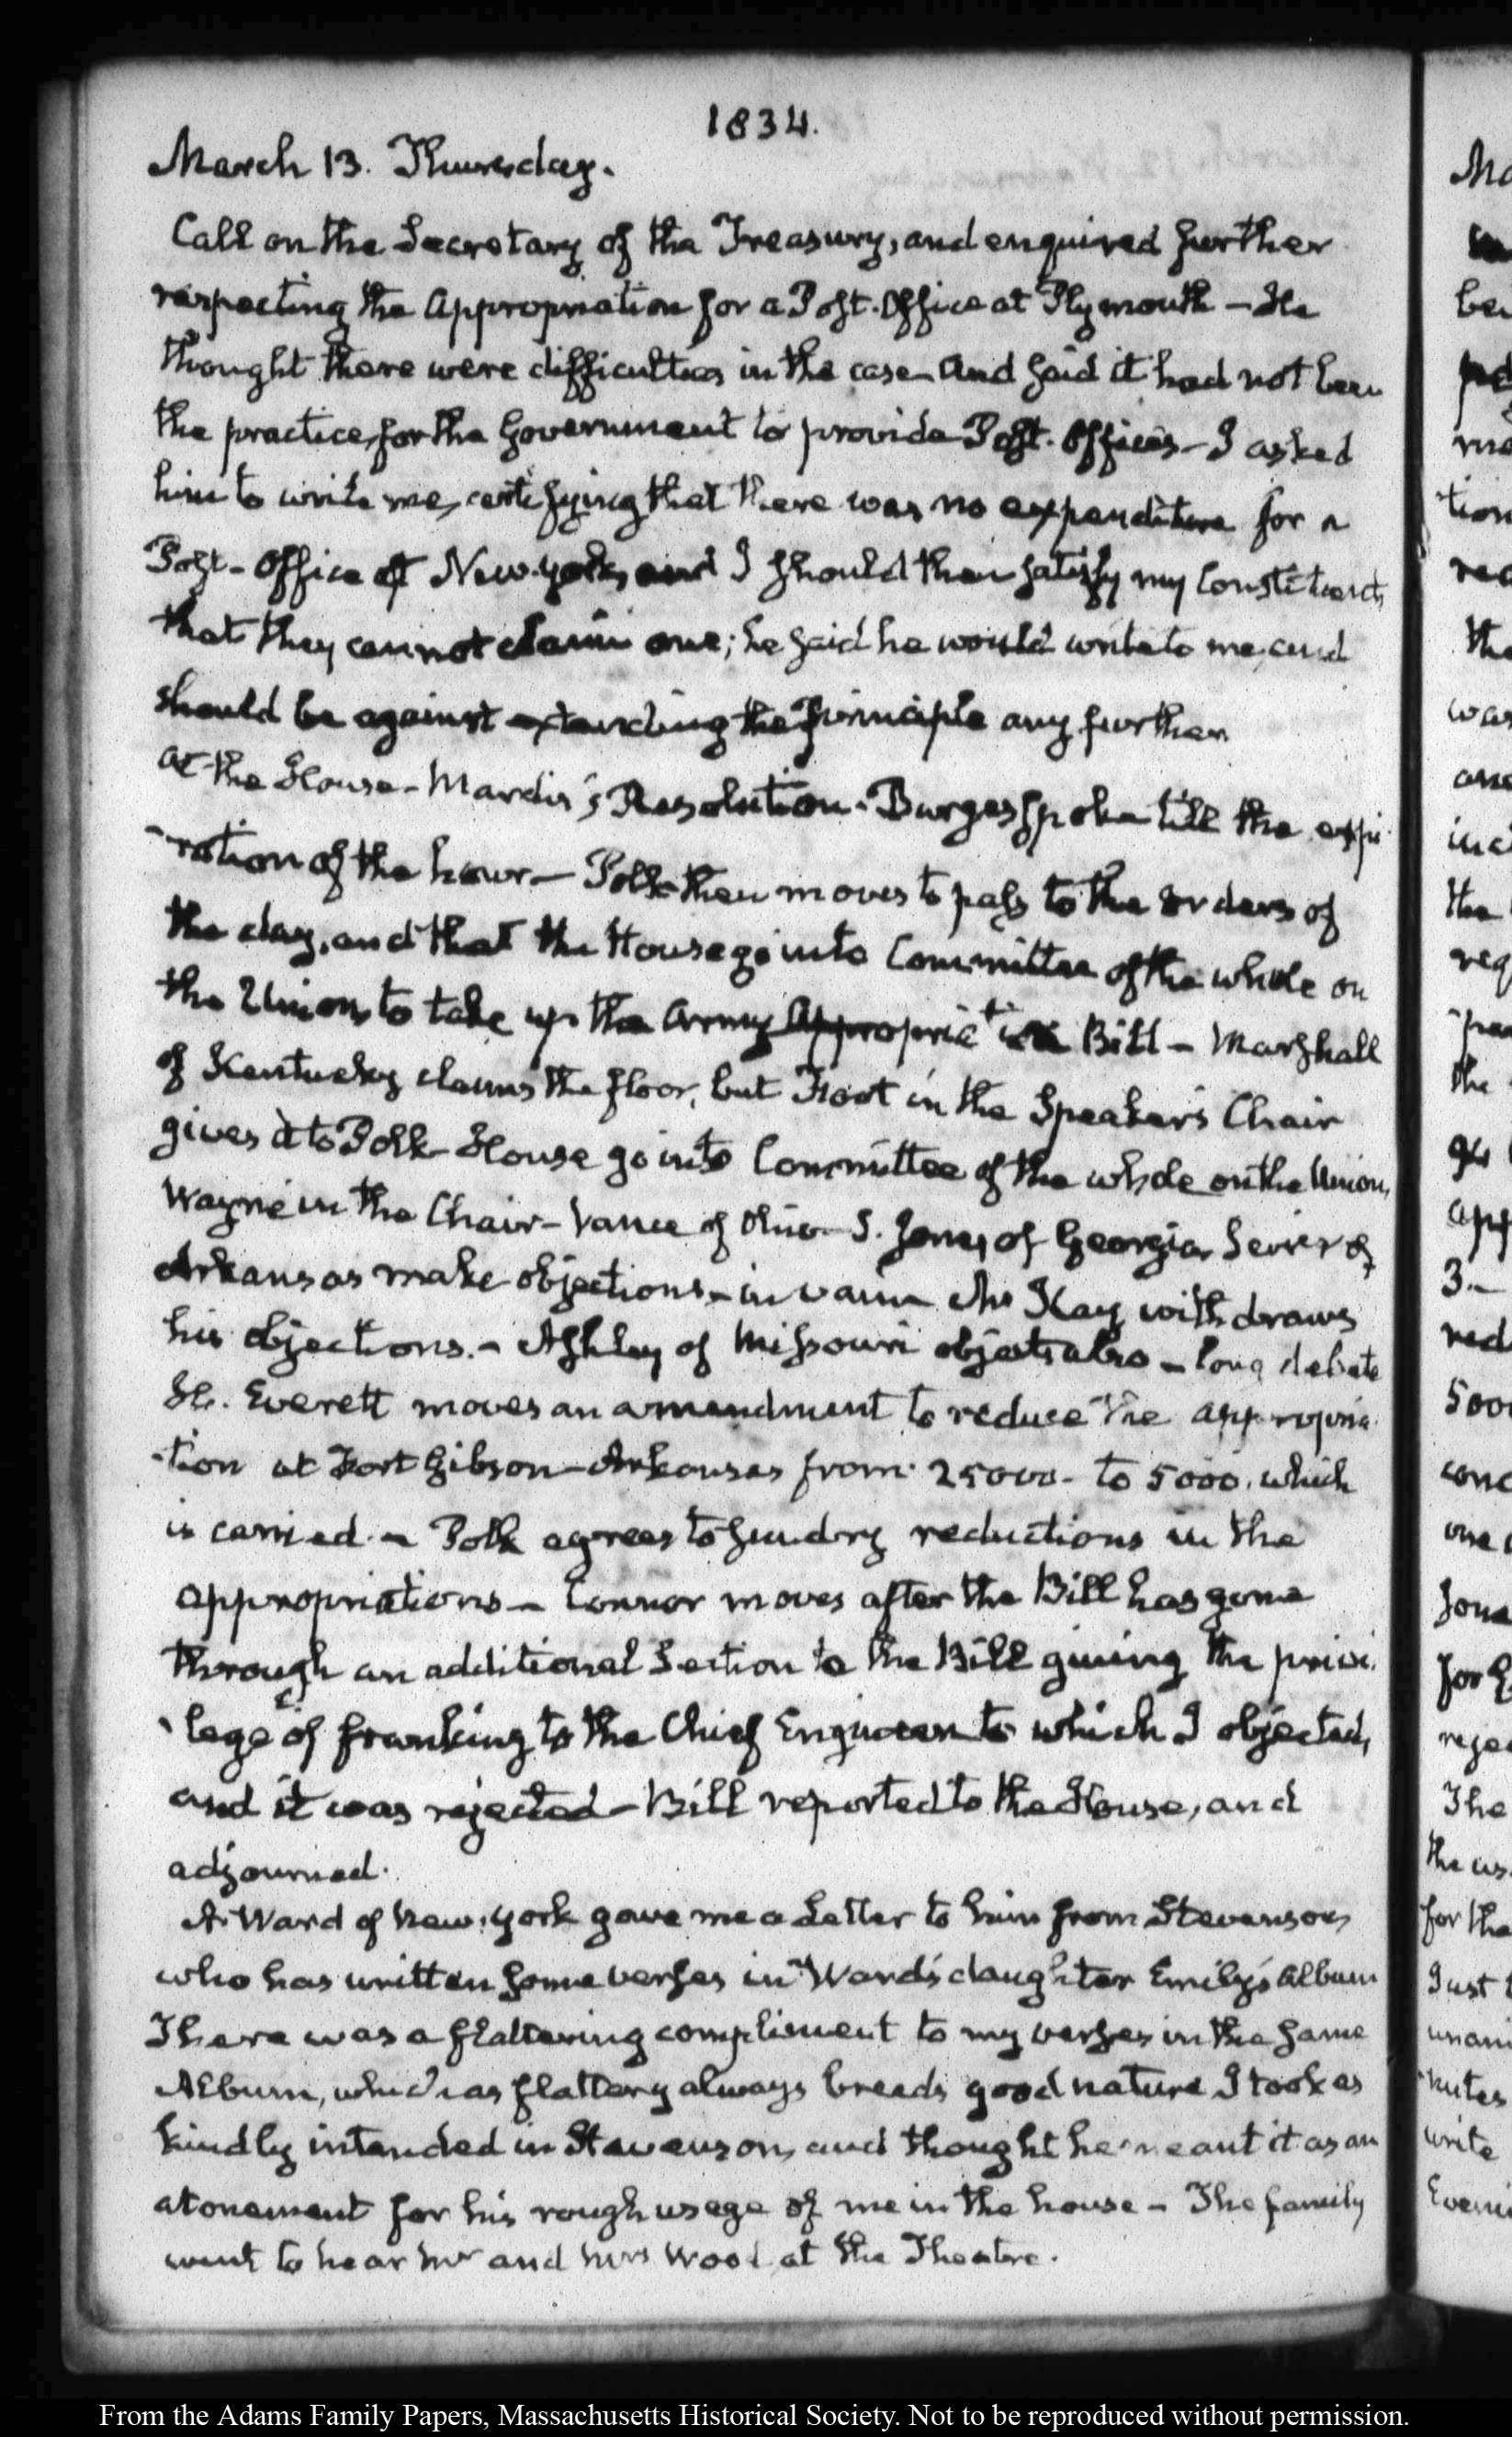 1834.
March 13. Thursday.
Call on the Secretary of the Treasury, and enquired further
respecting the Appropriation for a Post-Office at Plymouth — He
thought there were difficulties in the case and said it had not been
the practice, for the Government to provide Post-Offices — I asked
him to write me, certifying that there was no expenditure for a
Post-Office at New-York, and I should then satisfy my Constituents
that they cannot claim one; he said he would write to me, and
should be against extending the Principle any further
at the House — Mardis's Resolution. Burges spoke till the expi-
-ration of the hour — Polk then moves to pass to the orders of
the day, and that the House go into Committee of the whole on
the Union, to take up the Army Appropriation Bill — Marshall
of Kentucky claims the floor, but Foot in the Speaker's Chair
gives it to Polk — House go into Committee of the whole on the Union,
Wayne in the Chair — Vance of Ohio — S. Jones, of Georgia, Sevier of
Arkansas make objections — in vain — McKay withdraws
his objections. — Ashley of Missouri objects also — long debate
H. Everett moves an amendment to reduce the appropria-
-tion at Fort Gibson — Arkansas from 25000 — to 5000, which
is carried — Polk agrees to sundry reductions in the
appropriations — Connor moves after the Bill has gone
through an additional Section to the Bill giving the privi-
-lege of franking to the Chief Engineer to which I objected,
and it was rejected — Bill reported to the House, and
adjourned.
A. Ward of New-York gave me a Letter to him from Stevenson,
who has written some verses in Ward's daughter Emily's Album
There was a flattering compliment to my verses in the same
Album, which as flattery always breeds good nature I took as
kindly intended in Stevenson, and thought he meant it as an
atonement for his rough usage of me in the house — The family
went to hear Mr and Mrs Wood at the Theatre.
From the Adams Family Papers, Massachusetts Historical Society. Not to be reproduced without permission.